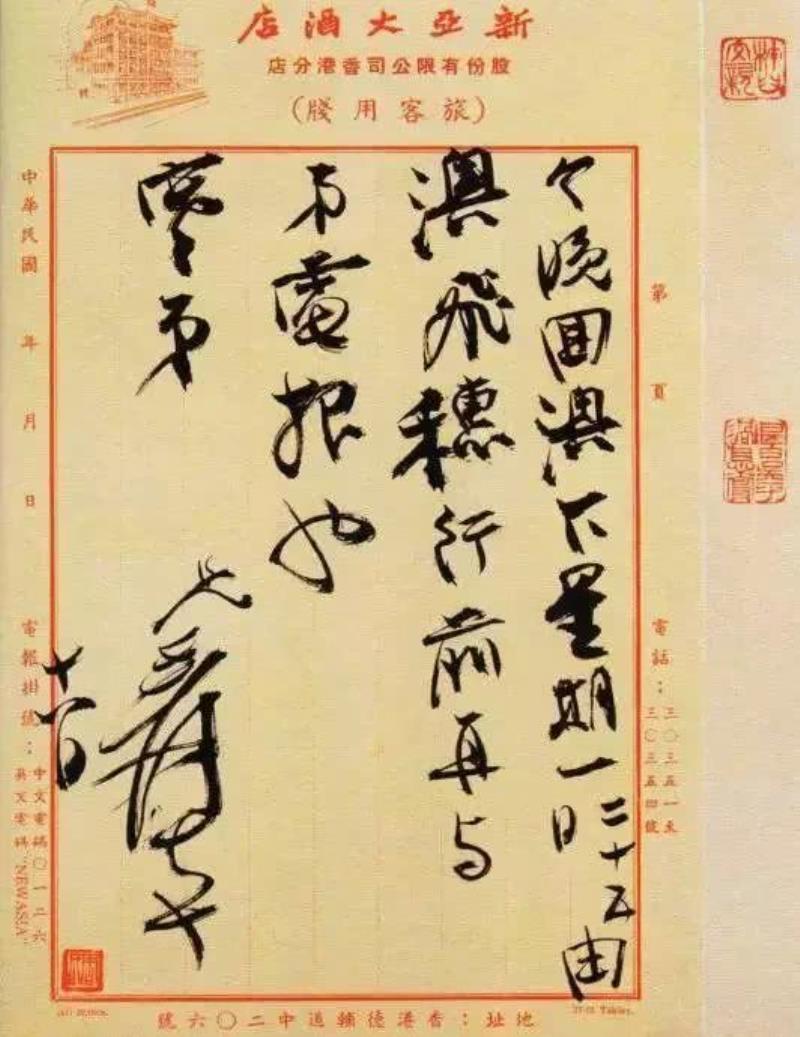 新亞大酒店
股份有限公司香港分店
(旅客用牋)
第 頁
電話：三〇三五一至三〇三五四號
今晚囬澳下星期一二十五日由
澳飛穗行前再与
弟電報也
寒弟
兄爰
十八日
中華民國 年 月 日
電報掛號：中文電碼〇一三六
英文電碼"NEWASIA"
地址：香港德輔道中二〇六號